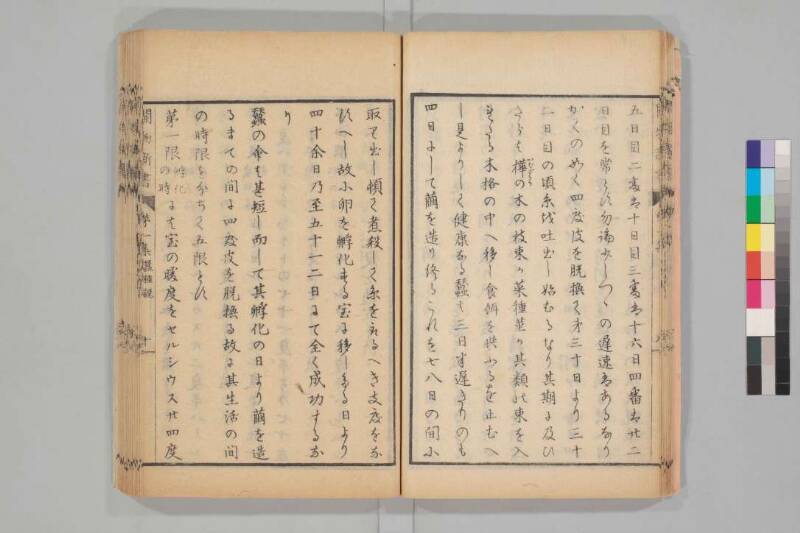 五日目二番は十日目三番は十六日四番は廿二
日目を常とす勿論少しつゝの遅速はあるなり
かくのめく四度皮を脱換して才三十日より三十
二日目の頃糸を吐出し始むるなり其期に及ひ
さらは樺の木の枝束か菜種茎か其類の束を入
たる木格の中へ移し食餌を供ふるを止むへ
し是よりして健康なる蠶は三日半遅きりのも
四日にして繭を造り終るこれを七八日の間に
取て出し頓て煮殺して糸をとるへき支度をな
すへし故小卵を孵化する室に移しゝる日より
四十余日乃至五十一二日にて全く成功するな
り
蠶の命は甚短し而して其孵化の日より繭を造
るまての間に四度皮を脱換る故に其生活の間
の時限を分ちて五限とす
第一限 孵化の時 には室の暖度をセルシウス廿四度
開物新書 第一集 蠶種説 十